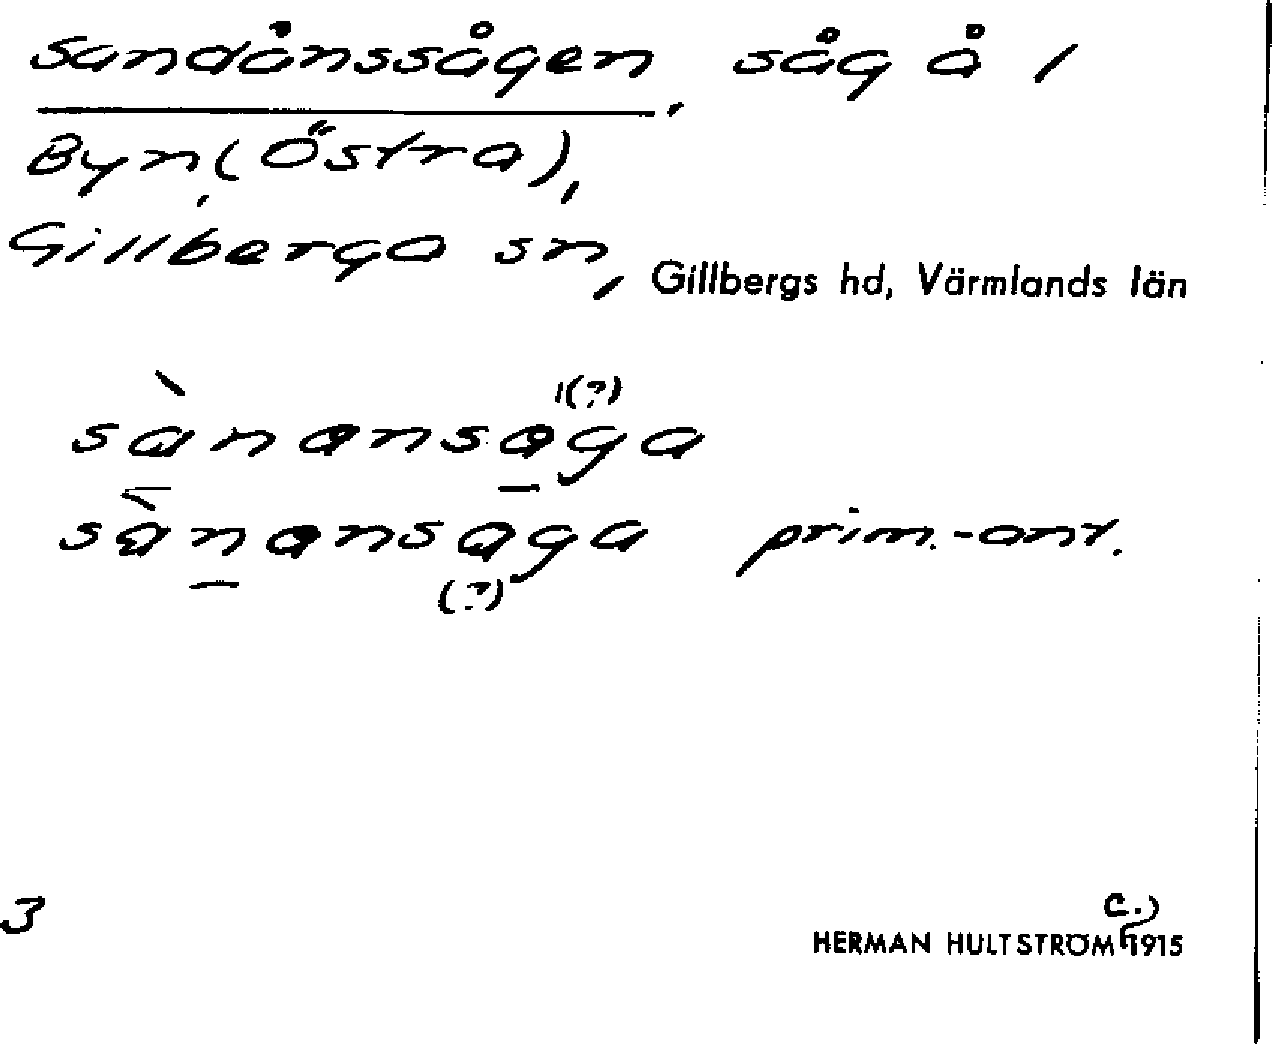 Sandånssågen, såg å 1
Byn, (Östra),
Gillberga sn, Gillbergs hd, Värmlands län
1(?)
sànansaga
sànansaga prim.-ant.
(?)
3
c.)
HERMAN HULTSTRÖM 1915